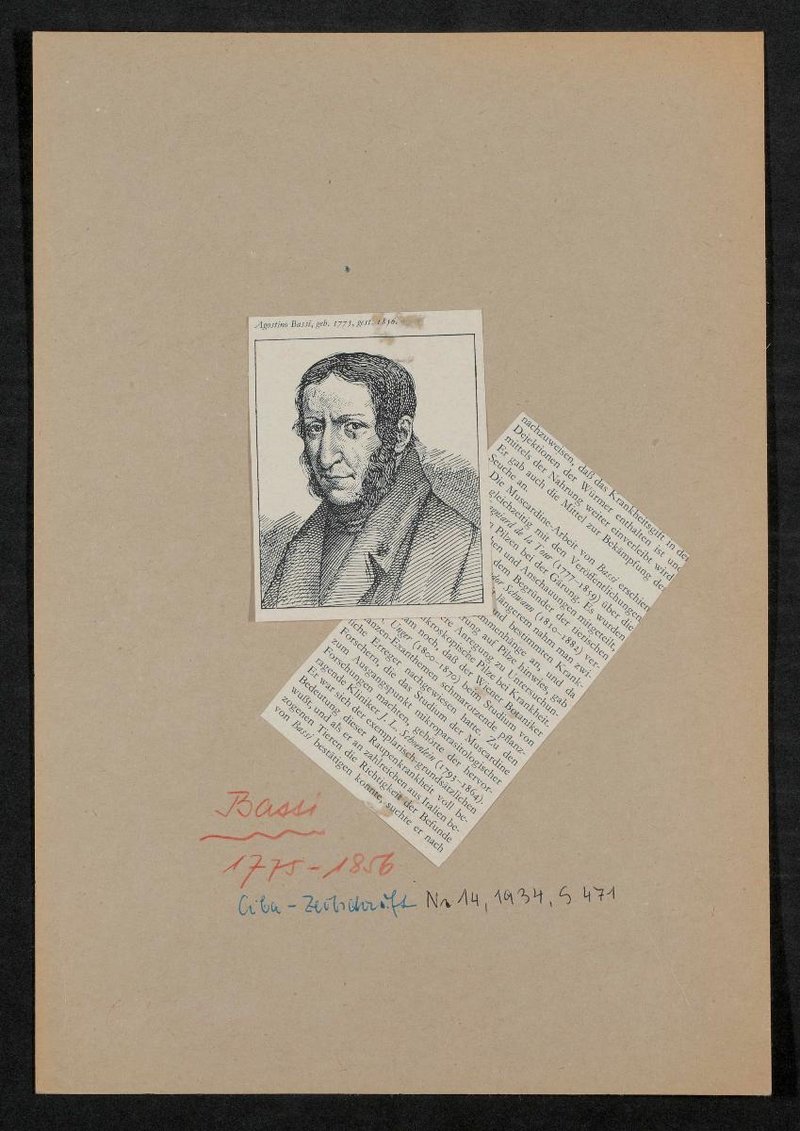 Agostino Bassi, geb. 1773, gest. 1856.
nachzuweisen, daß das Krankheitsgift in den
Dejektionen der Würmer enthalten ist und
mittels der Nahrung weiter einverleibt wird.
Er gab auch die Mittel zur Bekämpfung der
Seuche an.
Die Muscardine-Arbeit von Bassi erschien
gleichzeitig mit den Veröffentlichungen
de La Tour (1777–1859) über die
Pilzen bei der Gärung. Es wurden
und Anschauungen mitgeteilt,
dem Begründer der tierischen
Schwann (1810–1882) ver-
längerem nahm man zwi-
und bestimmten Krank-
Zusammenhänge an, und da
auf Pilze hinwies, gab
Anregung zu Untersuchun-
mikroskopische Pilze bei Krankheit.
noch, daß der Wiener Botaniker
Unger (1800–1870) beim Studium von
schmarotzende pflanz-
liche Erreger nachgewiesen hatte. Zu den
Forschern, die das Studium der Muscardine
zum Ausgangspunkt mikroparasitologischer
Forschungen machten, gehörte der hervor-
ragende Kliniker J. L. Schoenlein (1793–1864).
Er war sich der exemplarisch-grundsätzlichen
Bedeutung dieser Raupenkrankheit voll be-
wußt, und als er an zahlreichen aus Italien be-
zogenen Tieren die Richtigkeit der Befunde
von Bassi bestätigen konnte, suchte er nach
Bassi
1775-1856
Ciba-Zeitschrift Nr 14, 1934, S 471